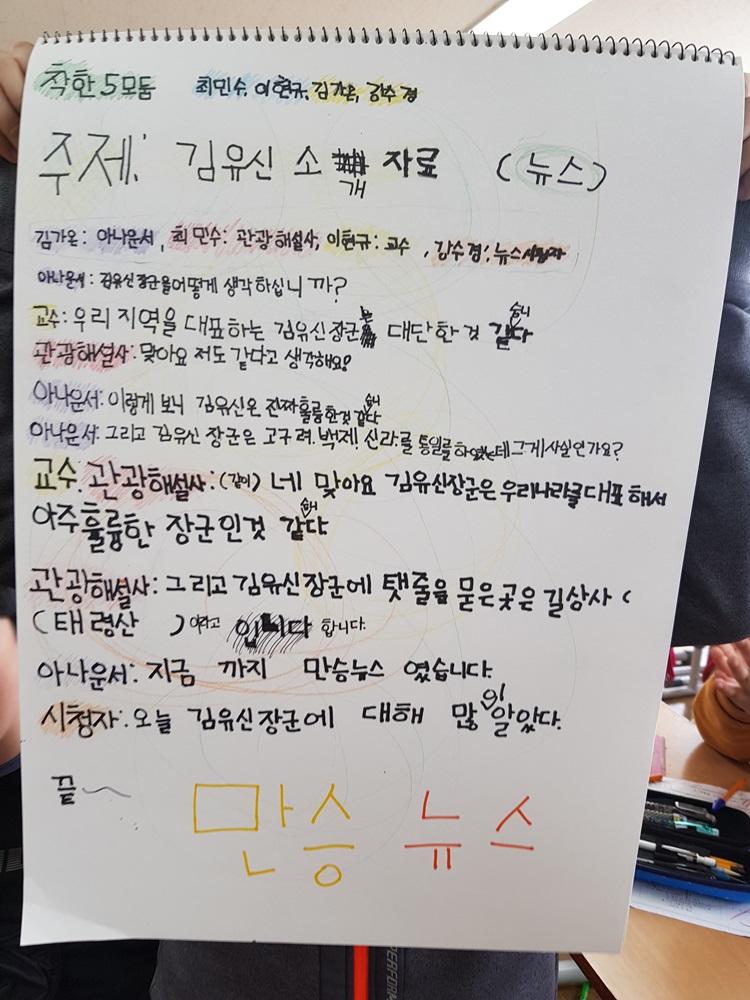 착한 5모둠 최민수, 이현규, 김가온, 강수경
주제: 김유신 소개 자료 (뉴스)
김가온: 아나운서, 최민수: 관광해설사, 이현규: 교수, 강수경: 뉴스시청자
아나운서: 김유신장군을어떻게 생각하십니까?
교수: 우리 지역을 대표하는 김유신장군은 대단한것 같습니다
관광해설사: 맞아요 저도 같다고 생각해요!
아나운서: 이렇게 보니 김유신은 진짜훌륭한것 같습니다
아나운서: 그리고 김유신 장군은 고구려. 백제. 신라를 통일를하였는데그게사실인가요?
교수. 관광해설사: (같이) 네 맞아요 김유신장군은 우리나라를대표해서
아주훌륭한 장군인것 같습니다
관광해설사: 그리고김유신장군에 탯줄을 묻은곳은 길상사 (
(태령산 )이라고 합니다.
아나운서: 지금 까지 만승뉴스 였습니다.
시청자: 오늘 김유신장군에 대해 많이 알았다.
끝~
만승 뉴스
PERFORM